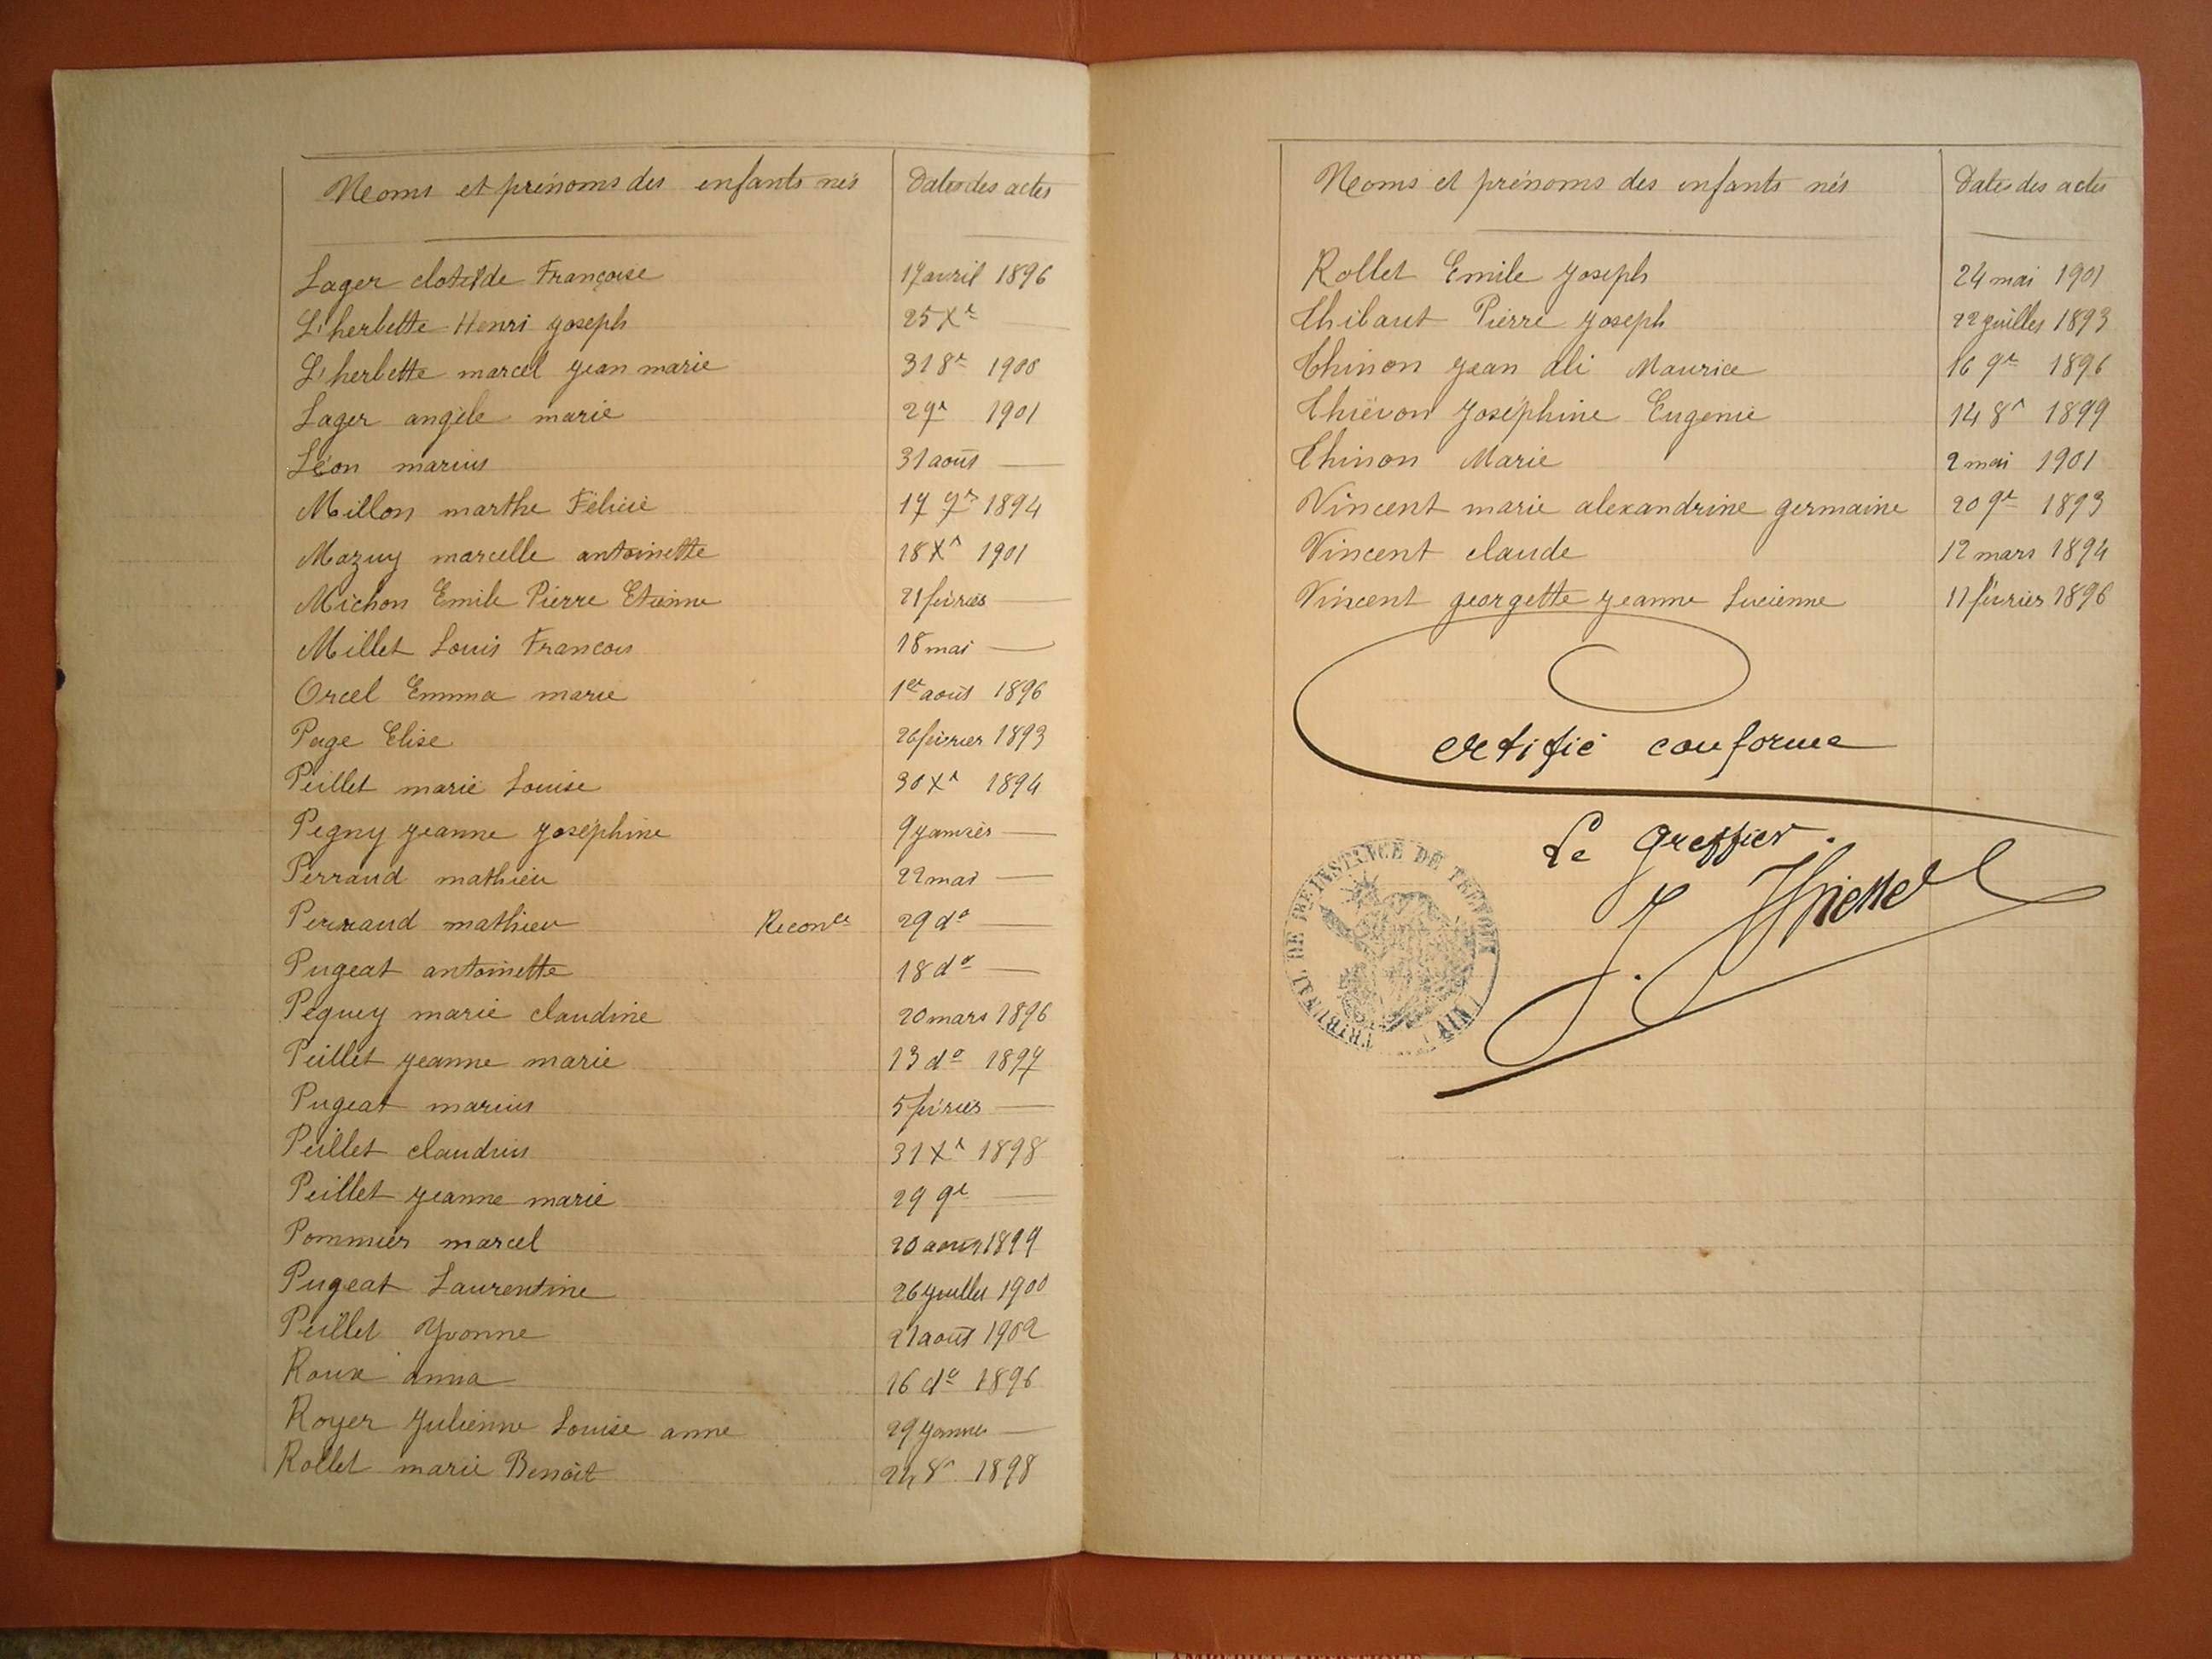 Noms et prénoms des enfants nés Dates des actes
Lager clotilde Françoise 17 avril 1896
L'herbette Henri Joseph 25 Xre —
L'herbette marcel Jean marie 31 8re 1900
Lager angèle marie 2 9re 1901
Léon marius 31 août —
Millon marthe Félicie 17 7re 1894
Mazuy marcelle antoinette 18 Xre 1901
Michon Emile Pierre Etienne 21 février —
Millet Louis Francois 18 mai —
Orcel Emma marie 1er août 1896
Page Elise 26 février 1893
Peillet marie Louise 30 Xre 1894
Pegny Jeanne Joséphine 9 janvier —
Perraud mathieu 22 mai —
Perraud mathieu Reconce 29 do —
Pugeat antoinette 18 do —
Péguey marie claudine 20 mars 1896
Peillet Jeanne marie 13 do 1897
Pugeat marius 5 février —
Peillet claudius 31 Xre 1898
Peillet Jeanne marie 29 9re —
Pommier marcel 20 août 1899
Pugeat Laurentine 26 juillet 1900
Peillet Yvonne 21 août 1902
Roux anna 16 do 1896
Royer Julienne Louise anne 29 janvier —
Rollet marie Benoît 24 8re 1898
Noms et prénoms des enfants nés Dates des actes
Rollet Emile Joseph 24 mai 1901
Thibaut Pierre Joseph 22 juillet 1893
Thinon Jean ali Maurice 16 9re 1896
Thiévon Joséphine Eugenie 14 8re 1899
Thinon Marie 2 mai 1901
Vincent marie alexandrine germaine 20 9re 1893
Vincent claude 12 mars 1894
Vincent georgette Jeanne Lucienne 11 février 1896
certifié conforme
Le greffier.
TRIBUNAL DE 1RE INSTANCE DE TRÉVOUX
(AIN)